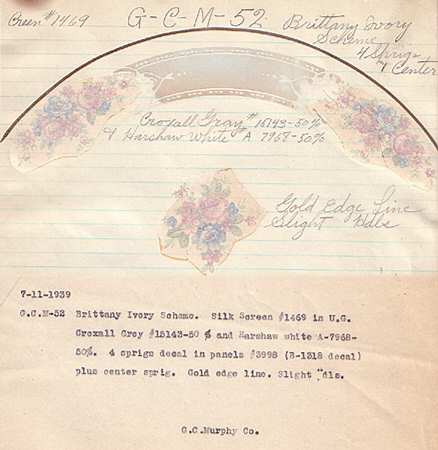 Creen #1469
G-C-M-52
Brittany Ivory
Scheme
4 Sprigs
& Center
Croxall Gray # 15143-50%
& Harshaw White # A 7968-50%
Gold Edge Line
Slight Hdls
7-11-1939
G.C.M-52 Brittany Ivory Scheme. Silk Screen #1469 in U.G.
Croxall Grey #15143-50 % and Harshaw white A-7968-
50%. 4 sprigs decal in panels #3998 (B-1318 decal)
plus center sprig. Gold edge line. Slight "dls.
G.C.Murphy Co.